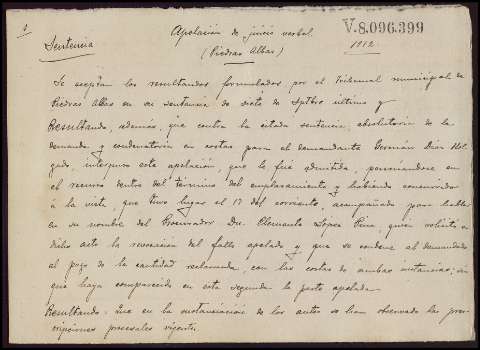 1
Apelación de juicio verbal.
V.8.096.399
Sentencia
(Piedras Albas)
1912.
Se aceptan los resultandos formulados por el Tribunal municipal de
Piedras Albas en su sentencia de siete de Sptbre último y
Resultando, además, que contra la citada sentencia, absolutoria de la
demanda y condenatoria en costas para el demandante Germán Dios Del-
gado, interpuso este apelación, que le fué admitida, personándose en
el recurso dentro del término del emplazamiento y habiendo concurrido
á la vista, que tuvo lugar el 17 del corriente, acompañado para hablar
en su nombre del Procurador Dn. Clemente López Pena, quien solicitó en
dicho acto la revocación del fallo apelado y que se condene al demandado
al pago de la cantidad reclamada, con las costas de ambas instancias; sin
que haya comparecido en esta segunda la parte apelada.
Resultando: Que en la sustanciación de los autos se han observado las pres-
cripciones procesales vigentes.